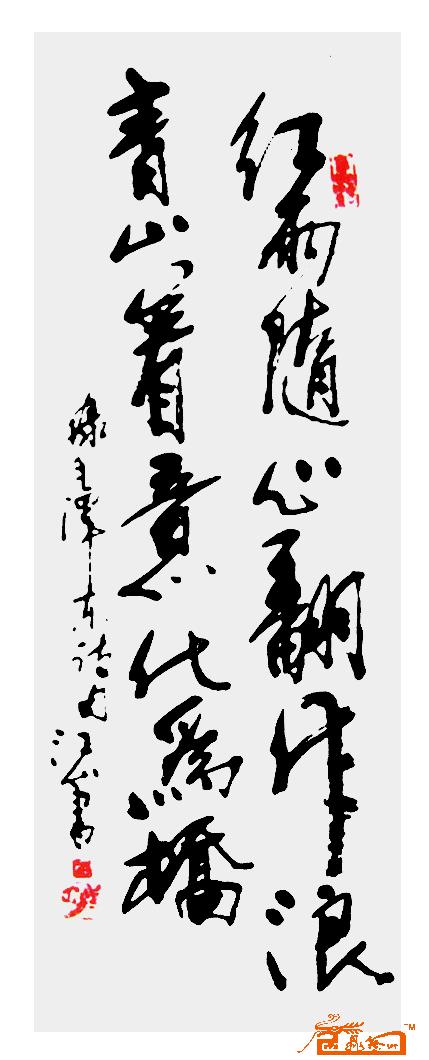 红雨随心翻作浪
青山着意化為橋
录毛泽东诗句江